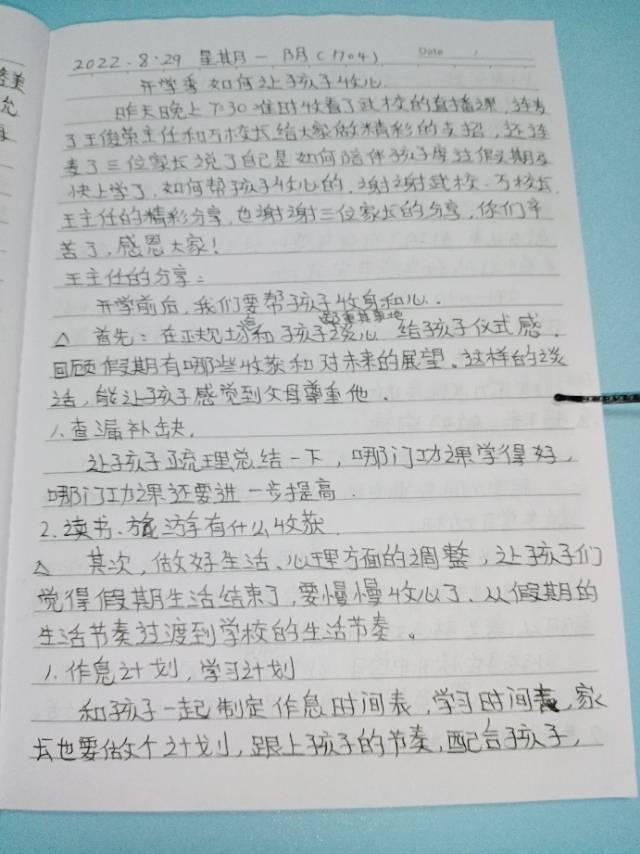 2022.8.29 星期一 阴 (1704) Date
开学季如何让孩子收心
昨天晚上7:30准时收看了武校的直播课,连麦
了王俊荣主任和万校长给大家做精彩的支招,还连
麦了三位家长说了自己是如何陪伴孩子度过假期及
快上学了,如何帮孩子收心的,谢谢武校、万校长、
王主任的精彩分享,也谢谢三位家长的分享,你们辛
苦了,感恩大家!
王主任的分享:
开学前后,我们要帮孩子收身和心.
△ 首先:在正规场和孩子谈心 给孩子仪式感.
回顾假期有哪些收获和对未来的展望。这样的谈
话,能让孩子感觉到父母尊重他.
1.查漏补缺.
让孩子梳理总结一下,哪门功课学得好,
哪门功课还要进一步提高.
2.读书、旅游有什么收获.
△ 其次,做好生活、心理方面的调整,让孩子们
觉得假期生活结束了,要慢慢收心了.从假期的
生活节奏过渡到学校的生活节奏。
1.作息计划,学习计划
和孩子一起制定作息时间表,学习时间表,家
长也要做个计划,跟上孩子的节奏,配合孩子,